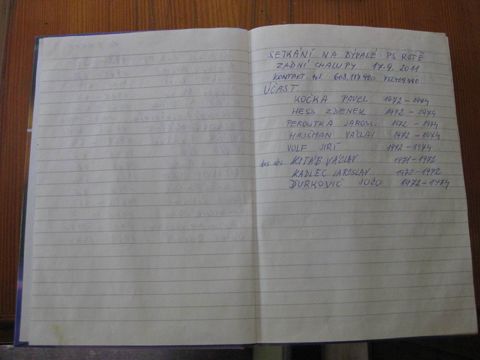 SETKÁNÍ NA BÝVALÉ PS ROTĚ
ZADNÍ CHALUPY 17.9. 2011
KONTAKT tel
ÚČAST
KOČKA PAVEL 1972-1974
HESS ZDENEK 1972-1974
PEROUTKA JAROSL. 1972-1974
HAISMAN VÁCLAV 1972-1974
VOLF JIŘÍ 1972-1974
VÁCLAV 1971-1972
KADLEC JAROSLAV 1970-1972
ĎURKOVIČ JOŽO 1972-1974